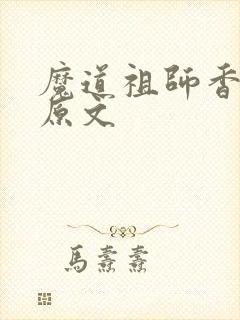 魔道祖師香
原文
馬燾燾